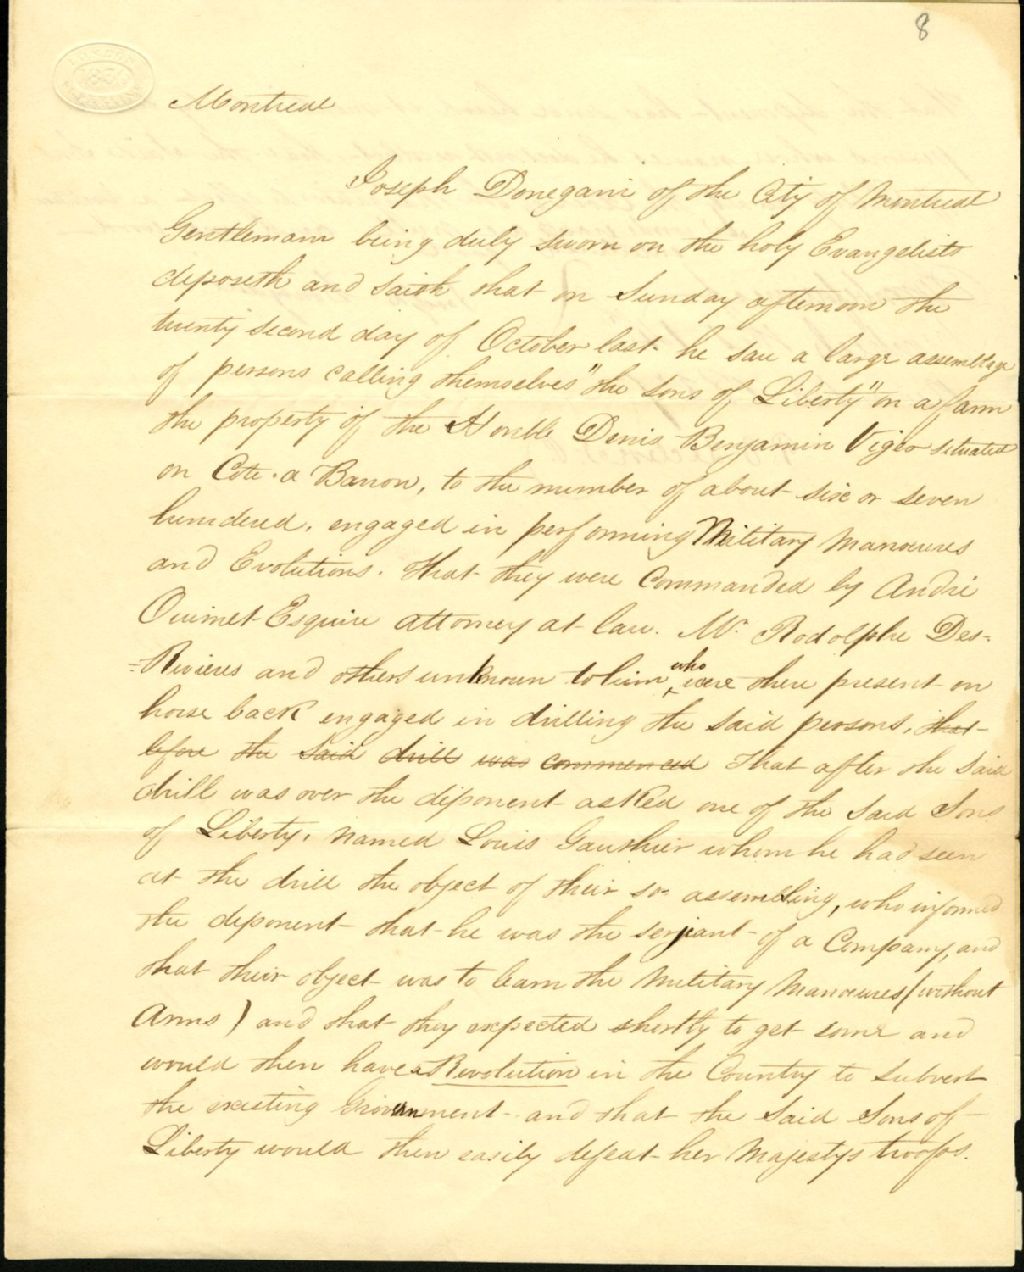 8
Montreal
Joseph Donegani of the City of Montreal
Gentleman being duly sworn on the holy Evangelists
deposeth and saith that on Sunday afternoon the
twenty second day of October last he saw a large assemblage
of persons calling themselves "the sons of Liberty" on a farm
the property of the Honble Denis Benjamin Viger situated
on Cote a Baron, to the number of about six or seven
hundred, engaged in performing Military Manœuvres
and Evolutions. That they were Commanded by André
Ouimet Esquire attorney at law. Mr. Rodolphe Des=
=Rivieres and others unknown to him, who were there present on
horse back engaged in drilling the said persons, that
before the said drill was commenced That after the said
drill was over the deponent asked one of the said Sons
of Liberty, named Louis Gauthier whom he had seen
at the drill the object of their so assembling, who informed
the deponent that he was the serjeant of a Company, and
that their object was to learn the Military Manœuvres (without
Arms) and that they expected shortly to get some and
would then have a Revolution in the Country to subvert
the existing Government and that the said Sons of
Liberty would then easily defeat her Majestys troops.